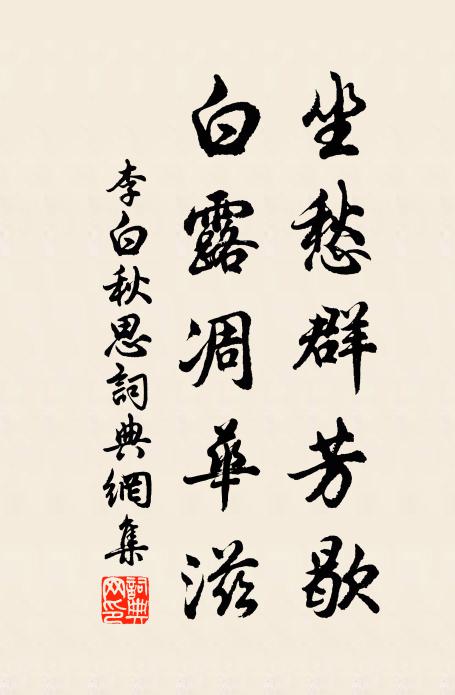 坐愁群芳歇
白露凋華滋
李白秋思詞典網集
詞典网印